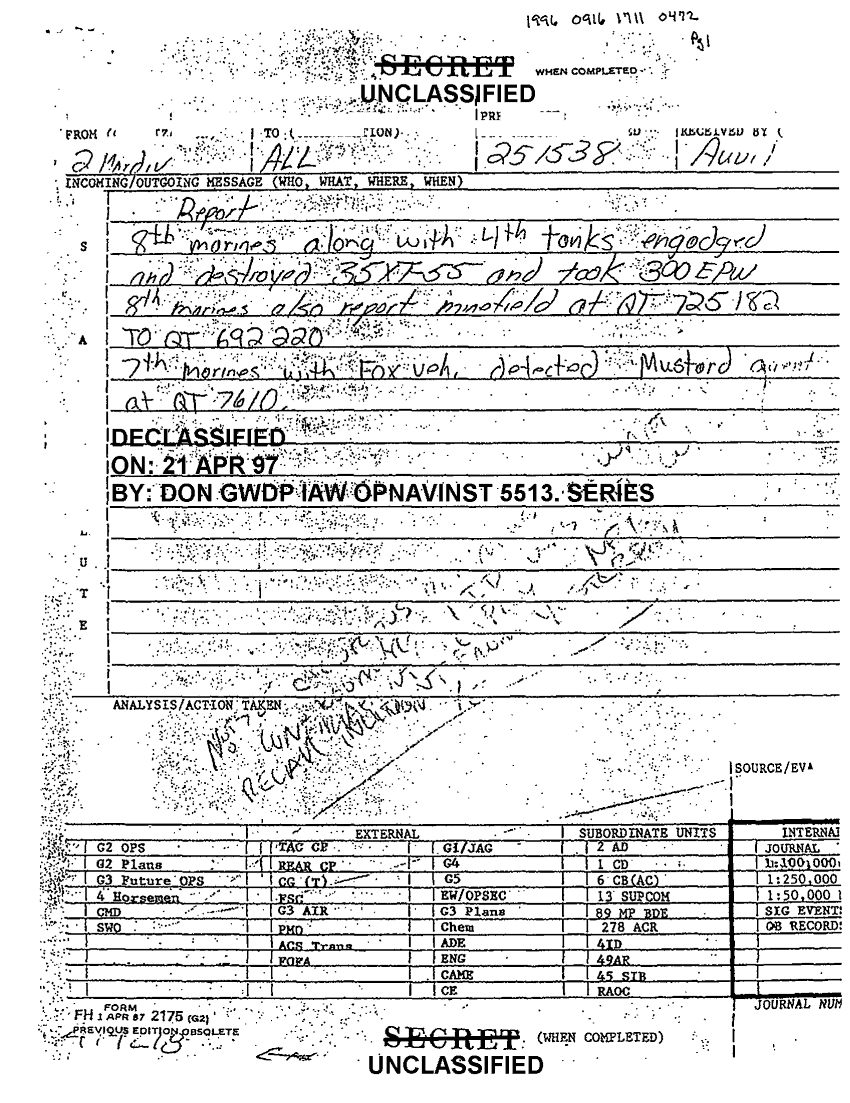 1996 0916 1711 0472
Pg1
SECRET WHEN COMPLETED
UNCLASSIFIED
FROM TO ( RECEIVED BY (
2 Mardiv ALL 251538 Auvil
INCOMING/OUTGOING MESSAGE (WHO, WHAT, WHERE, WHEN)
Report
S 8th marines along with 4th tanks engodged
and destroyed 35XT-55 and took 300 EPW
8th marines also report minefield at QT 725182
A TO QT 692220
7th Marines with Fox veh. detected Mustard agent
at QT 7610.
DECLASSIFIED
ON: 21 APR 97
BY: DON GWDP IAW OPNAVINST 5513. SERIES
U
T
E
ANALYSIS/ACTION TAKEN
SOURCE/EVA
EXTERNAL SUBORDINATE UNITS INTERNAL
G2 OPS TAC CP G1/JAG 2 AD JOURNAL
G2 Plans REAR CP G4 1 CD 1:100,000
G3 Future OPS CG (T) G5 6 CB(AC) 1:250,000
4 Horsemen FSC EW/OPSEC 13 SUPCOM 1:50,000
CMD G3 AIR G3 Plans 89 MP BDE SIG EVENTS
SWO PMO Chem 278 ACR OB RECORDS
ACS Trans ADE 4ID
FOFA ENG 49AR
CAME 45 SIB
CE RAOC
FH FORM 1 APR 87 2175 (G2)
JOURNAL NUM
PREVIOUS EDITION OBSOLETE
SECRET (WHEN COMPLETED)
UNCLASSIFIED